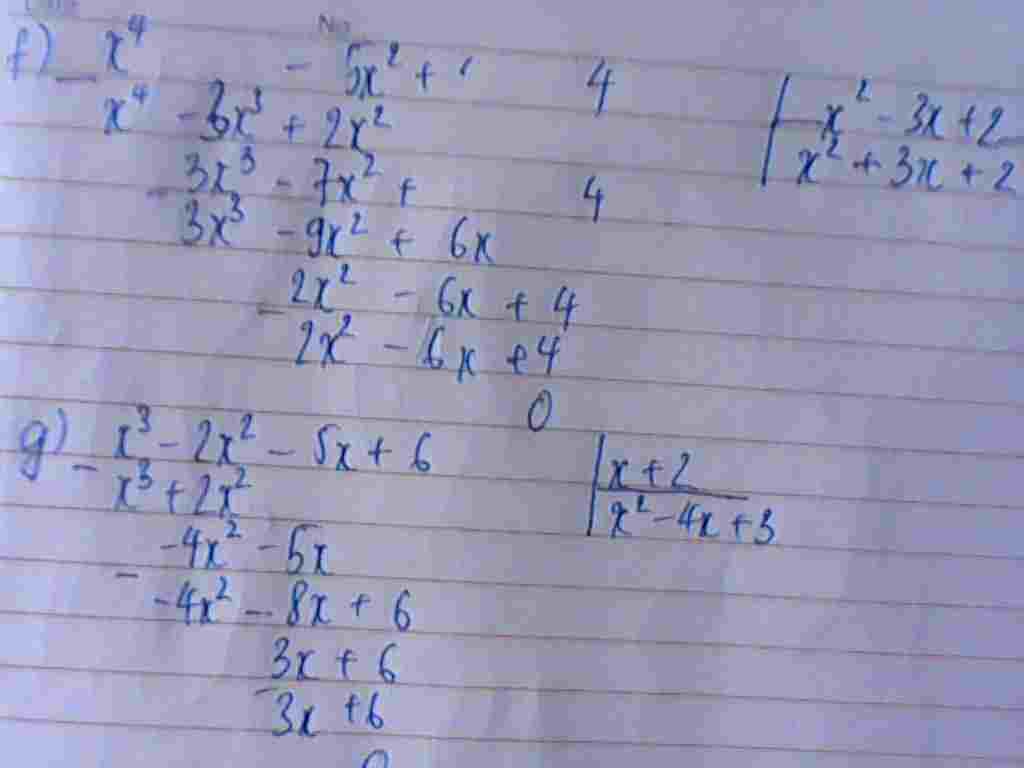 No
f) x⁴ - 5x² + 4 | x² - 3x + 2
x⁴ - 3x³ + 2x² | x² + 3x + 2
- 3x³ - 7x² + 4
3x³ - 9x² + 6x
- 2x² - 6x + 4
2x² - 6x + 4
0
g) - x³ - 2x² - 5x + 6 | x + 2
x³ + 2x² | x² - 4x + 3
- -4x² - 5x
-4x² - 8x + 6
- 3x + 6
3x + 6
0